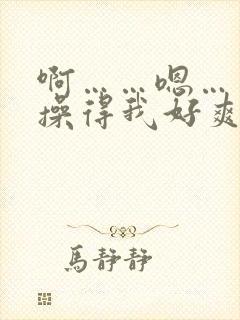 啊……嗯…
操得我好爽
馬静静